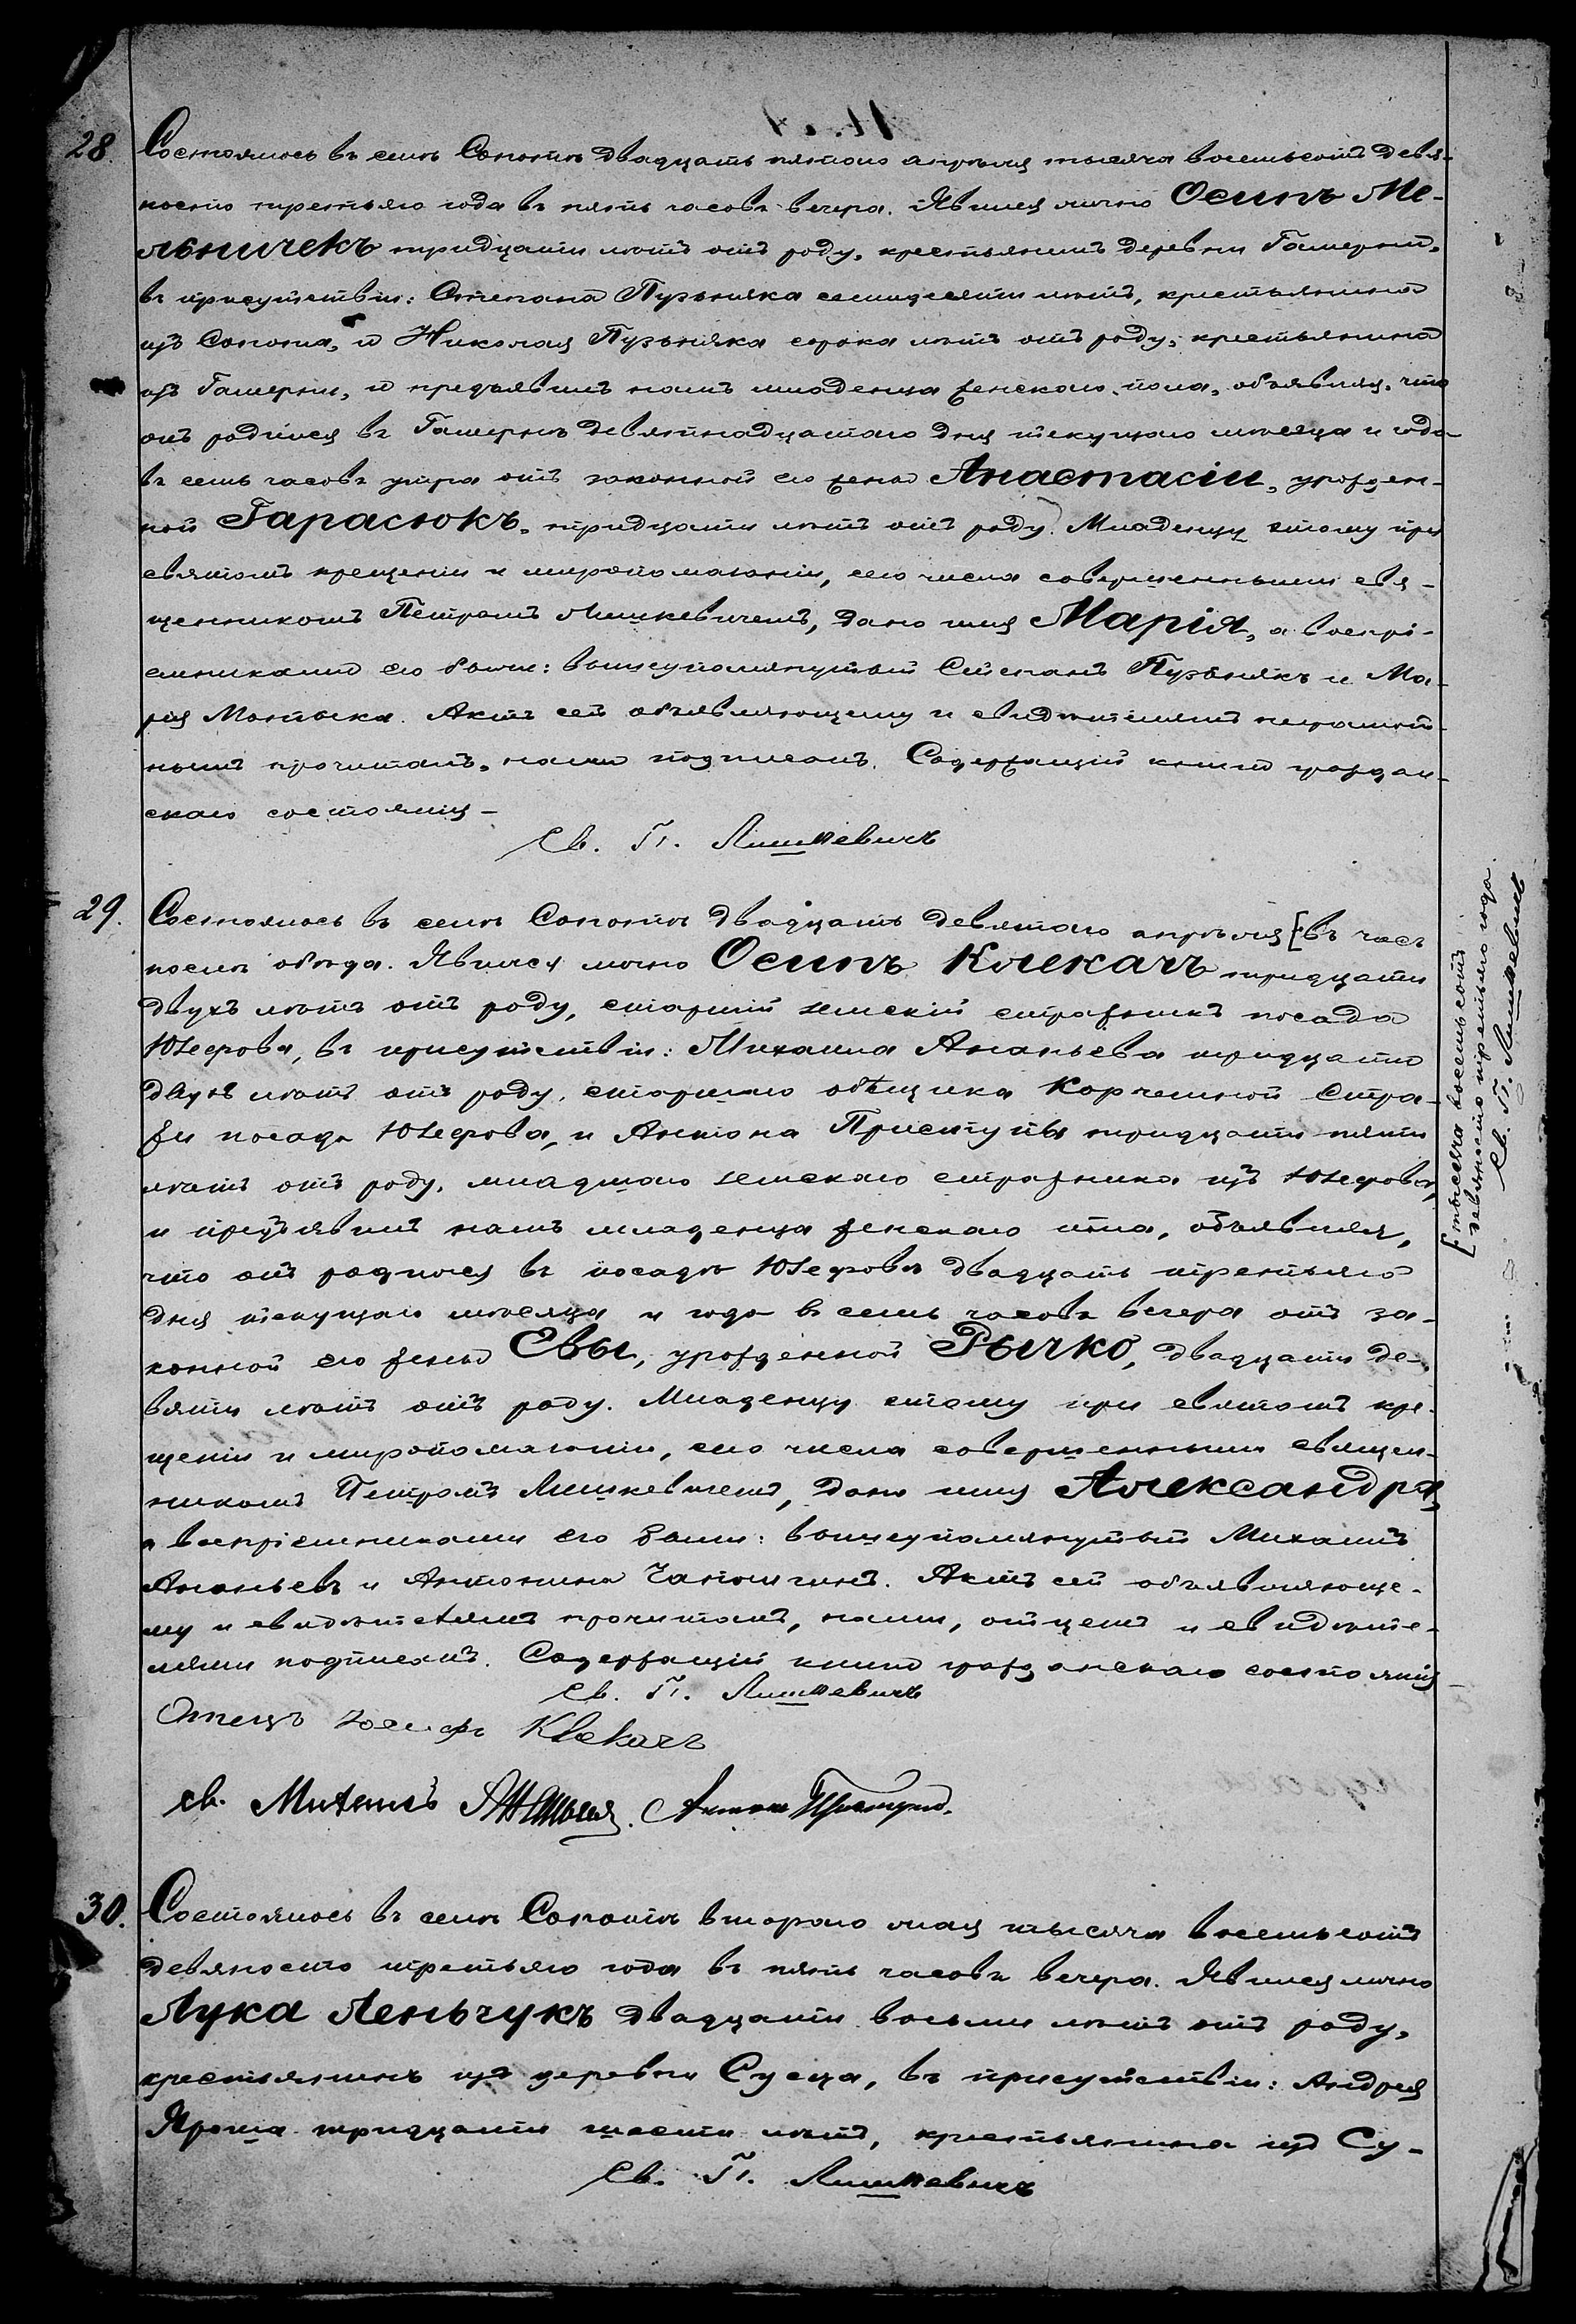 28.
Состоялось въ селѣ Сопотѣ двадцать пятаго апрѣля тысяча восемьсотъ девя-
носто третьяго года въ пять часовъ вечера. Явился лично Осипъ Ме-
льничекъ тридцати лѣтъ отъ роду, крестьянинъ деревни Гамерни,
въ присутствіи: Степана Пузьняка семидесяти лѣтъ, крестьянина
изъ Сопота, и Николая Пузьняка сорока лѣтъ отъ роду, крестьянина
изъ Гамерни, и предъявилъ намъ младенца женскаго пола, объявляя, что
онъ родился въ Гамернѣ девятнадцатаго дня текущаго мѣсяца и года
въ семь часовъ утра отъ законной его жены Анастасіи, урожден-
ной Гарасюкъ, тридцати лѣтъ отъ роду. Младенцу этому при
святомъ крещеніи и миропомазаніи, сего числа совершенными свя-
щенникомъ Петромъ Лишкевичемъ, дано имя Марія, а воспрі-
емниками его были: вышеупомянутый Степанъ Пузьнякъ и Ма-
рія. Актъ сей объявляющему и свидѣтелямъ неграмот-
нымъ прочитанъ, нами подписанъ. Содержащій книги граждан-
скаго состоянія –
Св. П. Лишкевичъ
29.
Состоялось въ селѣ Сопотѣ двадцать девятаго апрѣля [въ часъ
послѣ обѣда. Явился лично Осипъ Клекачъ тридцати
двухъ лѣтъ отъ роду, старшій земскій стражникъ посада
Юзефова, въ присутствіи: Михаила Ананьева тридцати
двухъ лѣтъ отъ роду, старшаго объѣщика Корчемной Стра-
жи посада Юзефова, и Антона Приступы тридцати пяти
лѣтъ отъ роду, младшаго земскаго стражника изъ Юзефова,
и предъявилъ намъ младенца женскаго пола, объявляя,
что онъ родился въ посадѣ Юзефовѣ двадцать третьяго
дня текущаго мѣсяца и года въ семь часовъ вечера отъ за-
конной его жены Евы, урожденной Рычко, двадцати де-
вяти лѣтъ отъ роду. Младенцу этому при святомъ кре-
щеніи и миропомазаніи, сего числа совершенными священ-
никомъ Петромъ Лишкевичемъ, дано имя Александра,
а воспріемниками его были: вышеупомянутый Михаилъ
Ананьевъ и Антонина. Актъ сей объявляюще-
му и свидѣтелямъ прочитанъ, нами, отцемъ и свидѣте-
лями подписанъ. Содержащій книги гражданскаго состоянія
Св. П. Лишкевичъ
Отецъ Іосифъ Клекачъ
св. Михаилъ Ананьевъ. Антонъ Приступа.
[тысяча восемьсотъ
девяносто третьяго года.
Св. П. Лишкевичъ
30.
Состоялось въ селѣ Сопотѣ второго мая тысяча восемьсотъ
девяносто третьяго года въ пять часовъ вечера. Явился лично
Лука Леньчукъ двадцати восьми лѣтъ отъ роду,
крестьянинъ изъ деревни Сусца, въ присутствіи: Андрея
Яроша тридцати шести лѣтъ, крестьянина изъ Су-
Св. П. Лишкевичъ